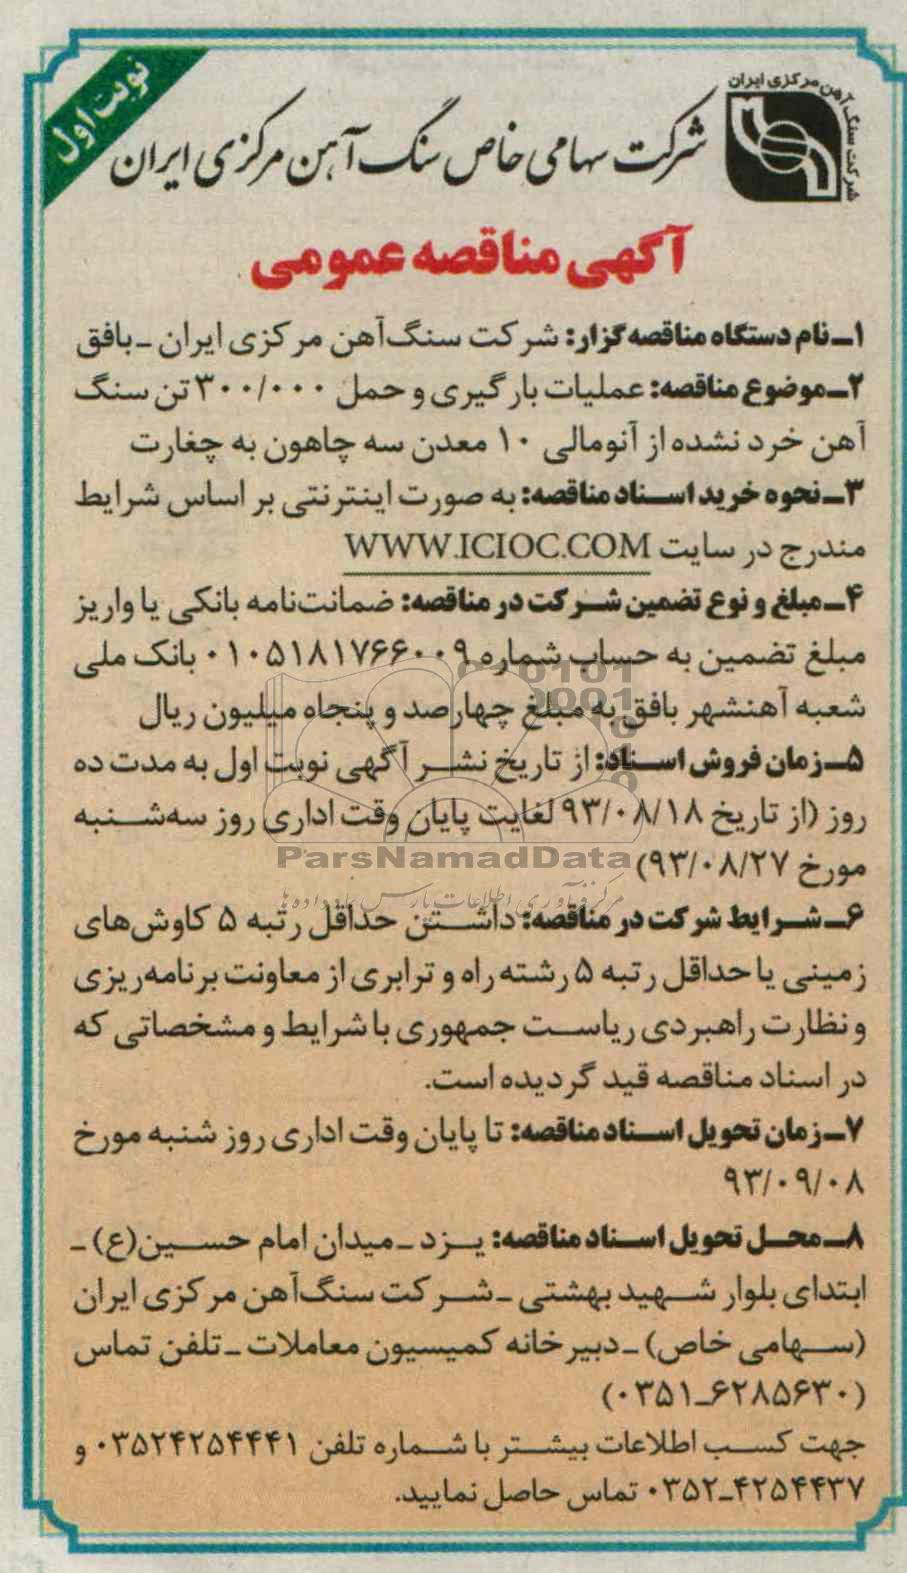 شرکت سنگ آهن مرکزی ایران
نوبت اول
شرکت سهامی خاص سنگ آهن مرکزی ایران
آگهی مناقصه عمومی
۱ـ نام دستگاه مناقصه گزار: شرکت سنگ‌آهن مرکزی ایران ـ بافق
۲ـ موضوع مناقصه: عملیات بارگیری و حمل ۳۰۰/۰۰۰ تن سنگ
آهن خرد نشده از آنومالی ۱۰ معدن سه چاهون به چغارت
۳ـ نحوه خرید اسناد مناقصه: به صورت اینترنتی بر اساس شرایط
مندرج در سایت WWW.ICIOC.COM
۴ـ مبلغ و نوع تضمین شرکت در مناقصه: ضمانت‌نامه بانکی یا واریز
مبلغ تضمین به حساب شماره ۰۱۰۵۱۸۱۷۶۶۰۰۹ بانک ملی
شعبه آهنشهر بافق به مبلغ چهارصد و پنجاه میلیون ریال
۵ـ زمان فروش اسناد: از تاریخ نشر آگهی نوبت اول به مدت ده
روز (از تاریخ ۹۳/۰۸/۱۸ لغایت پایان وقت اداری روز سه‌شنبه
مورخ ۹۳/۰۸/۲۷)
ParsNamadData
مرکز فرآوری اطلاعات پارس نماد داده‌ها
۶ـ شرایط شرکت در مناقصه: داشتن حداقل رتبه ۵ کاوش‌های
زمینی یا حداقل رتبه ۵ رشته راه و ترابری از معاونت برنامه‌ریزی
و نظارت راهبردی ریاست جمهوری با شرایط و مشخصاتی که
در اسناد مناقصه قید گردیده است.
۷ـ زمان تحویل اسناد مناقصه: تا پایان وقت اداری روز شنبه مورخ
۹۳/۰۹/۰۸
۸ـ محل تحویل اسناد مناقصه: یزد ـ میدان امام حسین(ع) ـ
ابتدای بلوار شهید بهشتی ـ شرکت سنگ‌آهن مرکزی ایران
(سهامی خاص) ـ دبیرخانه کمیسیون معاملات ـ تلفن تماس
(۰۳۵۱ـ۶۲۸۵۶۳۰)
جهت کسب اطلاعات بیشتر با شماره تلفن ۰۳۵۲۴۲۵۴۴۴۱ و
۰۳۵۲ـ۴۲۵۴۴۳۷ تماس حاصل نمایید.